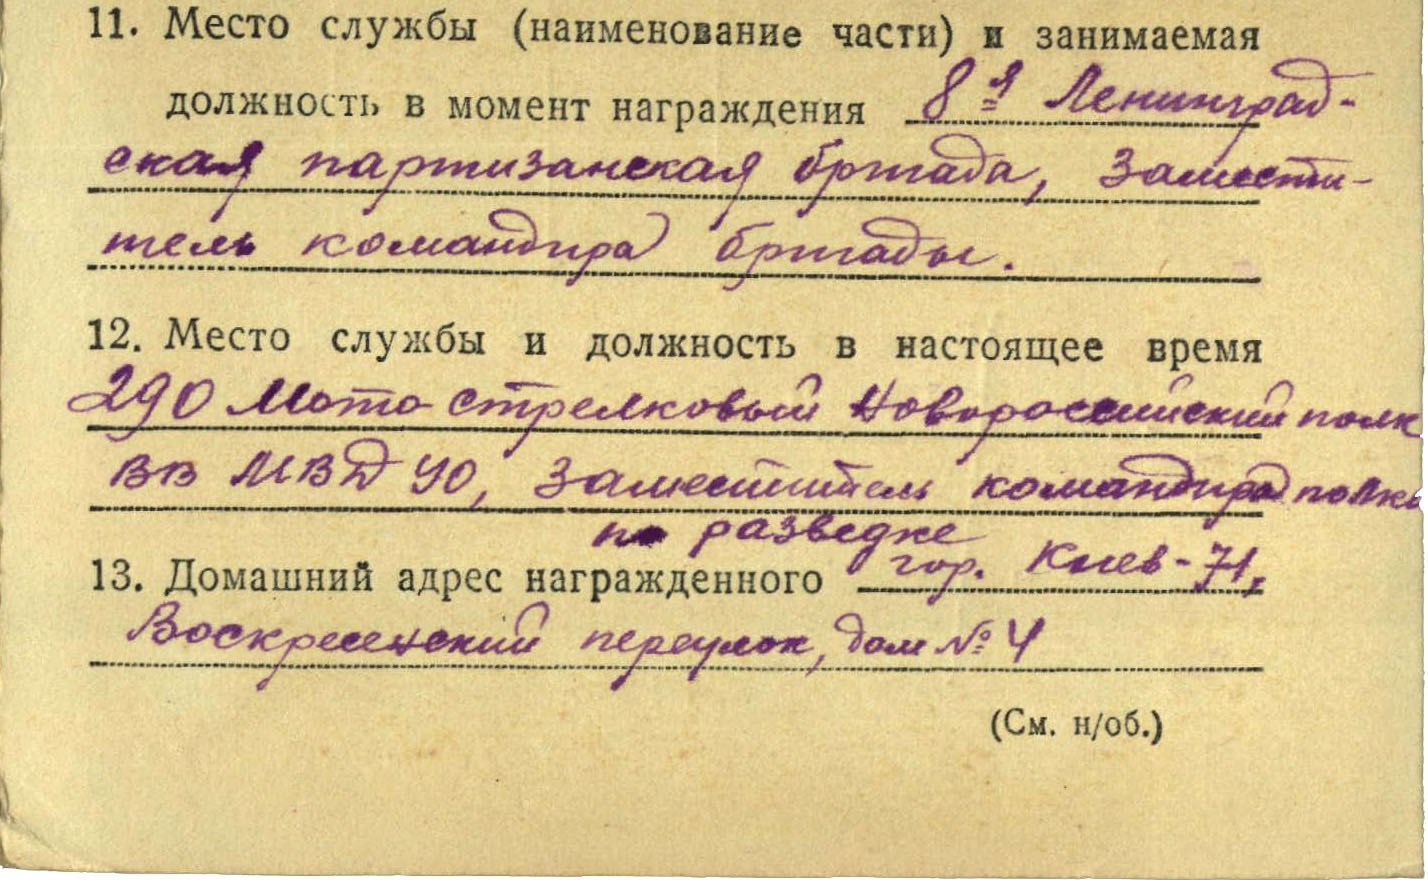 11. Место службы (наименование части) и занимаемая
должность в момент награждения 8-я Ленинград-
ская партизанская бригада, Замести-
тель командира бригады.
12. Место службы и должность в настоящее время
290 Мото-стрелковый Новороссийский полк
ВВ МВД УО, Заместитель командира полка
по разведке
13. Домашний адрес награжденного гор. Киев-71,
Воскресенский переулок, дом № 4
(См. н/об.)